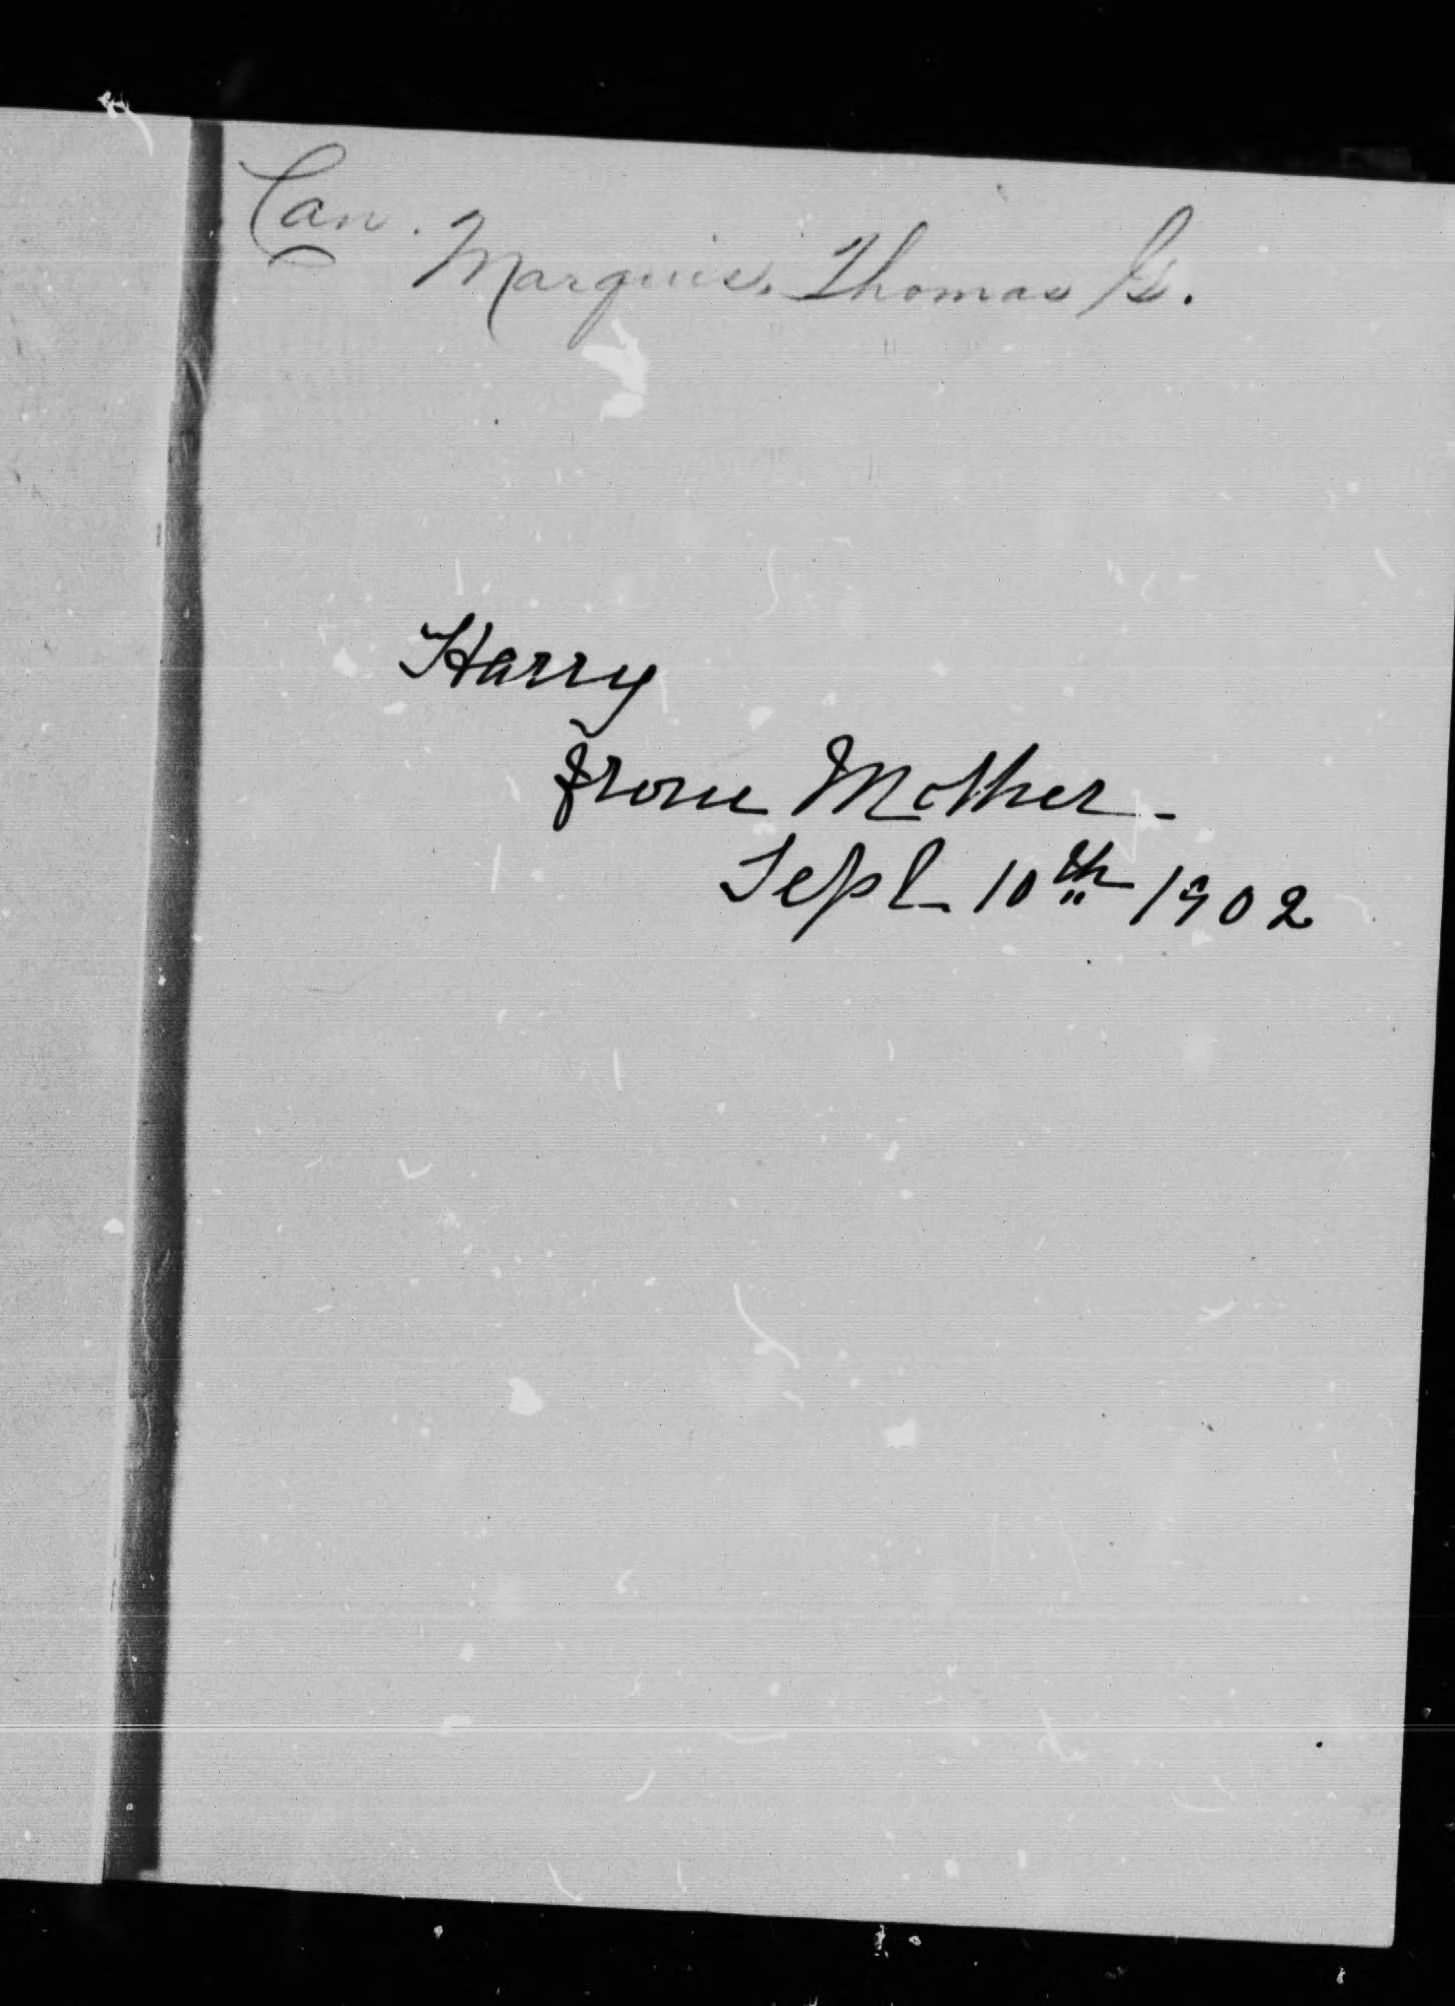 Can.
Marquis, Thomas G.
Harry
from Mother-
Sept 10th 1902